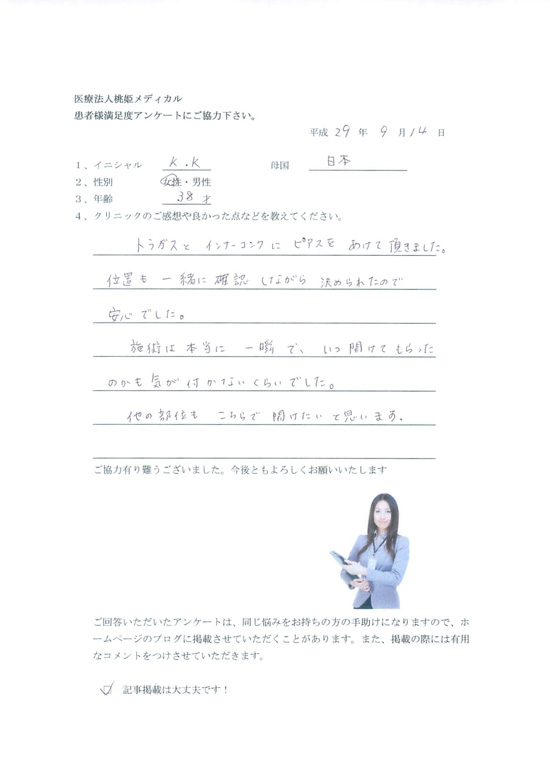 医療法人桃姫メディカル
患者様満足度アンケートにご協力下さい。
平成 29 年 9 月 14 日
1、イニシャル K.K 母国 日本
2、性別 女性・男性
3、年齢 38 才
4、クリニックのご感想や良かった点などを教えてください。
トラガスと インナーコンクに ピアスを あけて頂きました。
位置も 一緒に確認 しながら 決められたので
安心でした。
施術は本当に 一瞬 で、 いつ 開けてもらった
のかも気が付かないくらいでした。
他の部位も こちらで 開けたいと思います。
ご協力有り難うございました。今後ともよろしくお願いいたします
ご回答いただいたアンケートは、同じ悩みをお持ちの方の手助けになりますので、ホ
ームページのブログに掲載させていただくことがあります。また、掲載の際には有用
なコメントをつけさせていただきます。
記事掲載は大丈夫です！